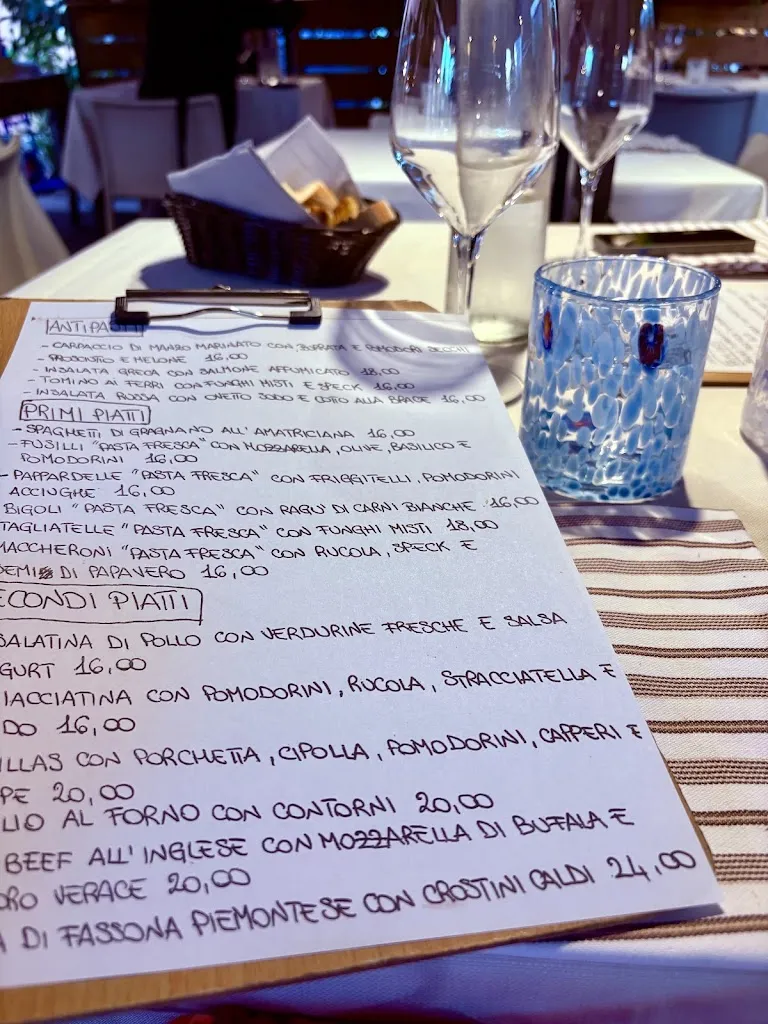 ANTIPASTI
- CARPACCIO DI MANZO MARINATO CON BURRATA E POMODORI SECCHI
- PROSCIUTTO E MELONE 16,00
- INSALATA GRECA CON SALMONE AFFUMICATO 18,00
- TOMINO AI FERRI CON FUNGHI MISTI E SPECK 16,00
- INSALATA RUSSA CON OVETTO SODO E COTTO ALLA BRACE 16,00
PRIMI PIATTI
- SPAGHETTI DI GRAGNANO ALL'AMATRICIANA 16,00
- FUSILLI "PASTA FRESCA" CON MOZZARELLA, OLIVE, BASILICO E
POMODORINI 16,00
- PAPPARDELLE "PASTA FRESCA" CON FRIGGITELLI, POMODORINI
ACCIUGHE 16,00
BIGOLI "PASTA FRESCA" CON RAGU' DI CARNI BIANCHE 16,00
TAGLIATELLE "PASTA FRESCA" CON FUNGHI MISTI 18,00
MACCHERONI "PASTA FRESCA" CON RUCOLA, SPECK E
SEMI DI PAPAVERO 16,00
ECONDI PIATTI
SALATINA DI POLLO CON VERDURINE FRESCHE E SALSA
GURT 16,00
IACCIATINA CON POMODORINI, RUCOLA, STRACCIATELLA E
DO 16,00
ILLAS CON PORCHETTA, CIPOLLA, POMODORINI, CAPPERI E
PE 20,00
LIO AL FORNO CON CONTORNI 20,00
BEEF ALL'INGLESE CON MOZZARELLA DI BUFALA E
ORO VERACE 20,00
A DI FASSONA PIEMONTESE CON CROSTINI CALDI 24,00